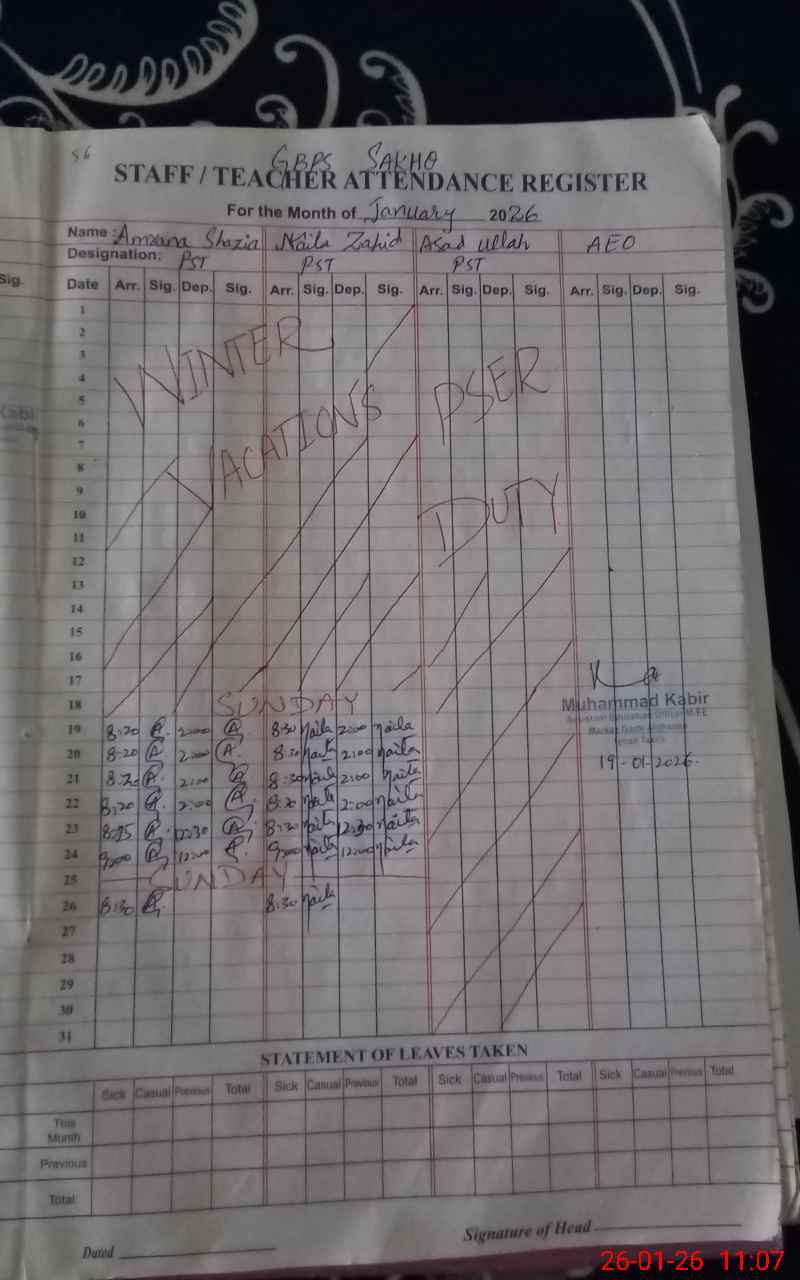 56
GBPS SAKHO
STAFF / TEACHER ATTENDANCE REGISTER
For the Month of January 2026
Name : Amana Shazia Naila Zahid Asad ullah AEO
Designation: PST PST PST
Sig. Date Arr. Sig. Dep. Sig. Arr. Sig. Dep. Sig. Arr. Sig. Dep. Sig. Arr. Sig. Dep. Sig.
1
2
3
WINTER
4
PSER
5
6
VACATIONS
7
8
9
10
DUTY
11
12
13
14
15
16
17
18 SUNDAY
Muhammad Kabir
19 8:20 A. 2:00 A 8:30 Naila 2:00 Naila
20 8:20 A 2:00 A. 8:30 Naila 2:00 Naila
Tehsil Taxila
19-01-2026.
21 8:20 A. 2:00 A 8:30 Naila 2:00 Naila
22 8:20 A. 2:00 A 8:20 Naila 2:00 Naila
23 8:25 A. 12:30 A 8:30 Naila 12:30 Naila
24 9:00 A 12:00 A. 9:00 Naila 12:00 Naila
25 SUNDAY
26 8:30 A. 8:30 Naila
27
28
29
30
31
STATEMENT OF LEAVES TAKEN
Sick Casual Previous Total Sick Casual Previous Total Sick Casual Previous Total Sick Casual Previous Total
This Month
Previous
Total
Dated Signature of Head
26-01-26 11:07